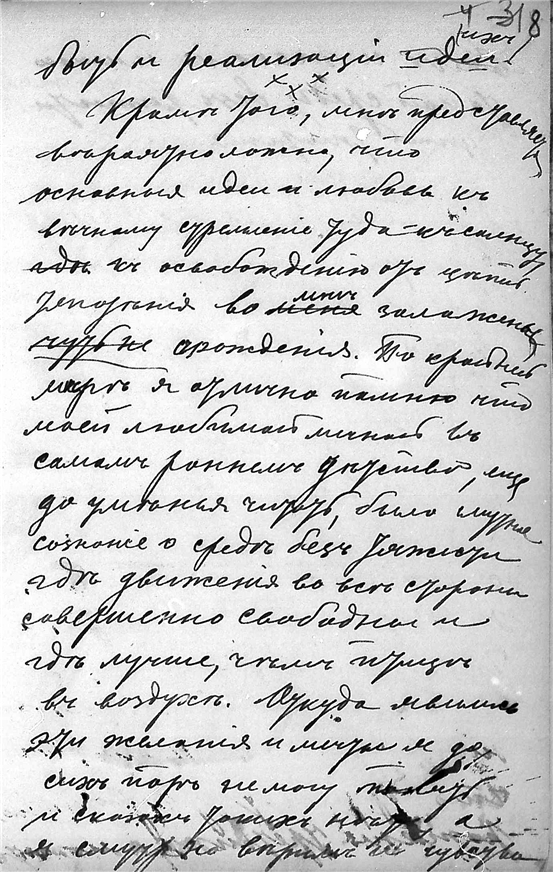 4 318
быть и реализаціи этихъ идей.
Кромѣ того, мнѣ представляется
вѣроятно ложно, что
основныя идеи и любовь къ
вѣчному стремленіе туда – къ солнцу,
къ освобожденію отъ цѣпей
тяготѣнія во мнѣ заложены
чуть не съ рожденія. По крайней
мѣрѣ я отлично помню что
моей любимой мечтой въ
самомъ раннемъ дѣтствѣ, еще
до умѣнья читать, было смутное
сознаніе о средѣ безъ тяжести
гдѣ движенія во всѣ стороны
совершенно свободны и
гдѣ лучше, чѣмъ птицѣ
въ воздухѣ. Откуда явились
эти желанія и мечты я до
сихъ поръ не могу понять
и сказокъ такихъ нѣтъ, а
я смутно вѣрилъ и чувство